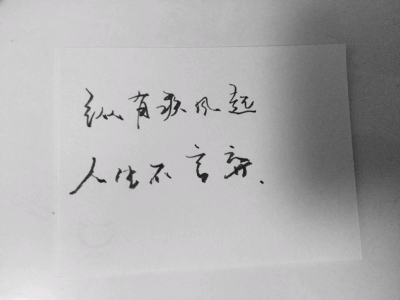 纵有疾风起
人生不言弃.